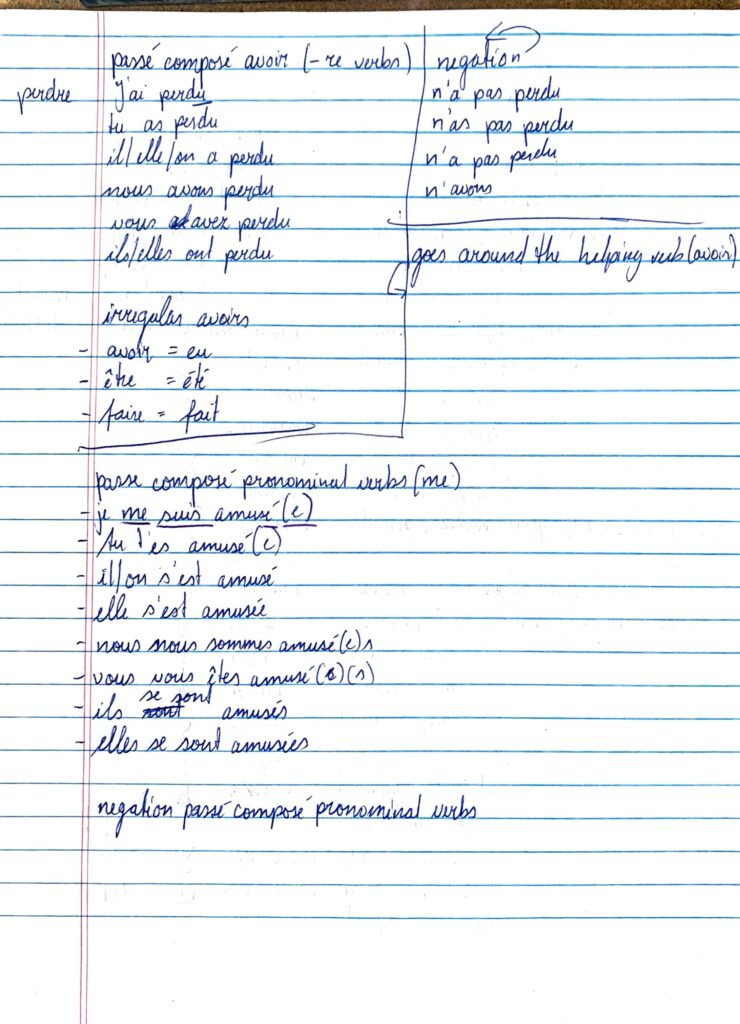 passé composé avoir (-re verbs)
negation
perdre
J'ai perdu
n'a pas perdu
tu as perdu
n'as pas perdu
il/elle/on a perdu
n'a pas perdu
nous avons perdu
n'avons
vous avez perdu
ils/elles ont perdu
goes around the helping verb (avoir)
irregular avoirs
- avoir = eu
- être = été
- faire = fait
passe composé pronominal verbs (me)
- je me suis amusé(e)
- tu t'es amusé(e)
- il/on s'est amusé
- elle s'est amusée
- nous nous sommes amusé(e)s
- vous vous êtes amusé(e)(s)
- ils se sont amusés
- elles se sont amusées
negation passé composé pronominal verbs